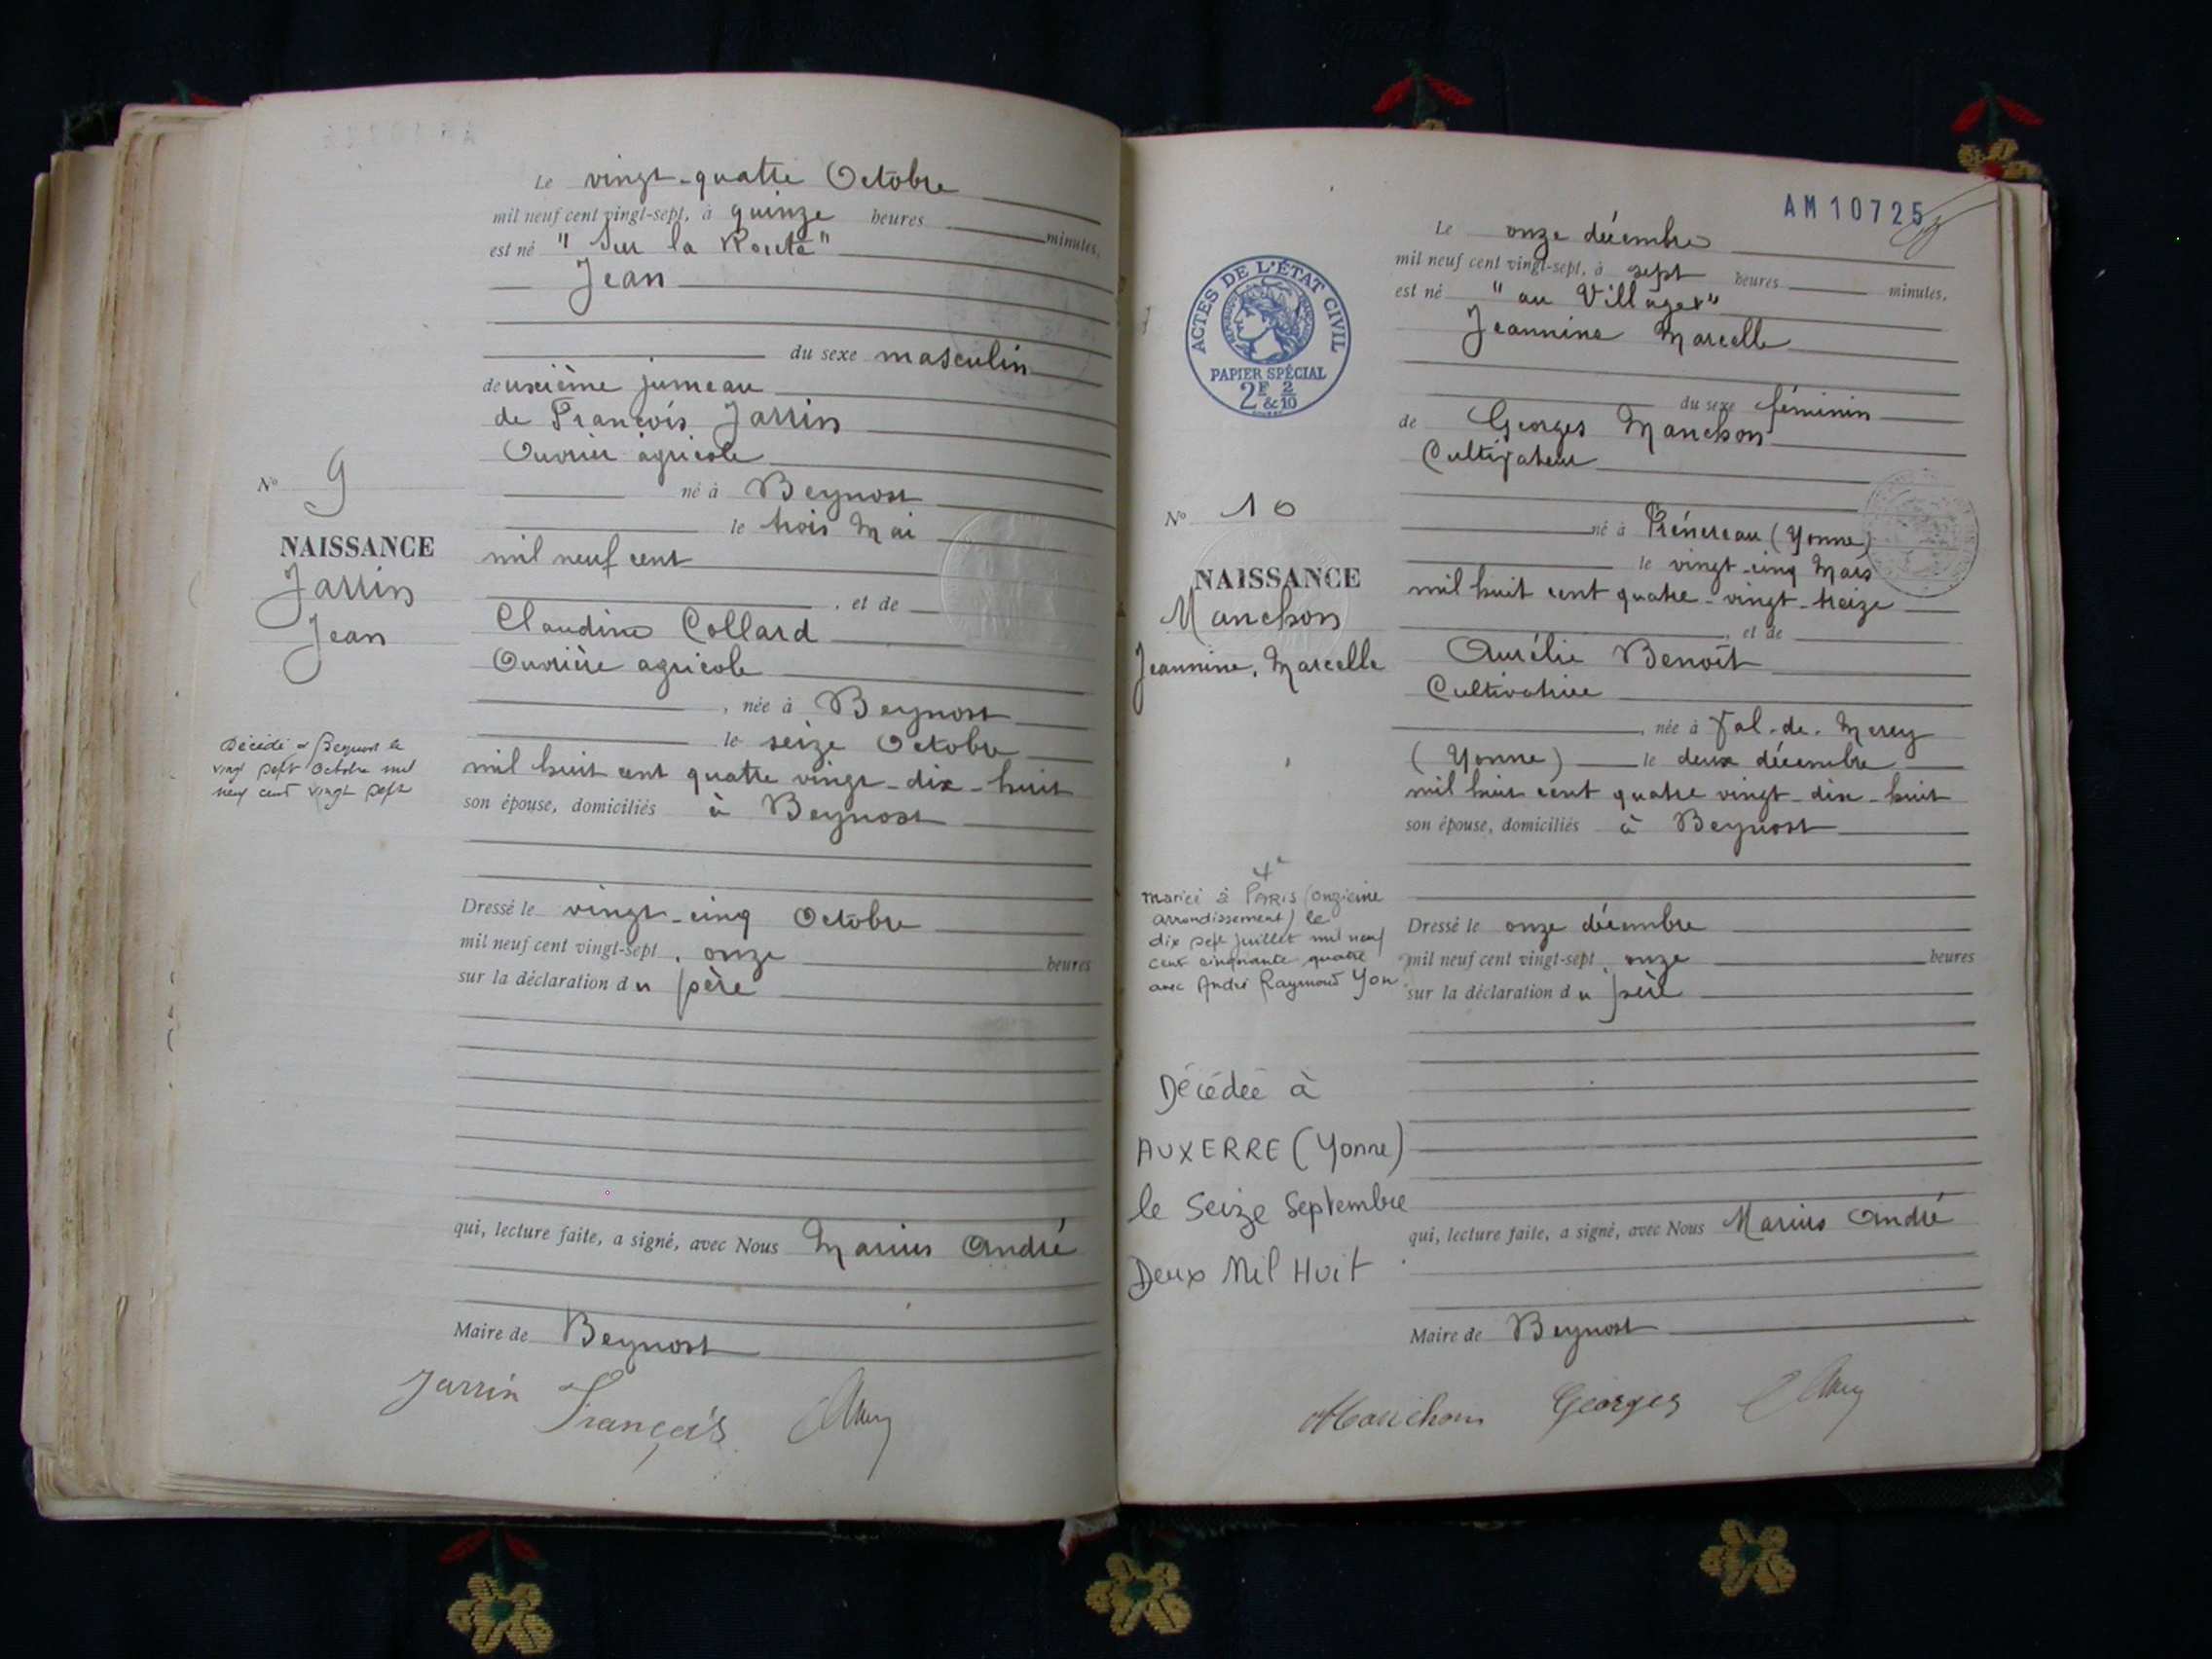 Le vingt-quatre Octobre
mil neuf cent vingt-sept, à quinze heures minutes,
est né "Sur la Route"
Jean
du sexe masculin
deuxième jumeau
de François Jarrin
Ouvrier agricole
né à Beynost
le trois Mai
mil neuf cent
, et de
Claudine Collard
Ouvrière agricole
, née à Beynost
le seize Octobre
mil huit cent quatre vingt-dix-huit
son épouse, domiciliés à Beynost
Dressé le vingt-cinq Octobre
mil neuf cent vingt-sept, onze heures
sur la déclaration du père
qui, lecture faite, a signé, avec Nous Marius André
Maire de Beynost
Jarrin François
N° 9
NAISSANCE
Jarrin
Jean
Décédé à Beynost le
vingt sept Octobre mil
neuf cent vingt sept
AM10725
Le onze décembre
mil neuf cent vingt-sept, à sept heures minutes,
est né "au Village"
Jeannine Marcelle
du sexe féminin
de Georges Manchon
Cultivateur
né à Prénereau (Yonne)
le vingt-cinq Mars
mil huit cent quatre-vingt-treize
, et de
Aurélie Benoît
Cultivatrice
, née à Val-de-Mercy
(Yonne) le deux décembre
mil huit cent quatre vingt-dix-huit
son épouse, domiciliés à Beynost
Dressé le onze décembre
mil neuf cent vingt-sept, onze heures
sur la déclaration du père
qui, lecture faite, a signé, avec Nous Marius André
Maire de Beynost
Manchon Georges
ACTES DE L'ÉTAT CIVIL
PAPIER SPÉCIAL
2F & 2/10
N° 10
NAISSANCE
Manchon
Jeannine, Marcelle
Mariée à PARIS (onzième
arrondissement) le
dix sept juillet mil neuf
cent cinquante quatre
avec André Raymond Yon
Décédée à
AUXERRE (Yonne)
le Seize Septembre
Deux Mil Huit